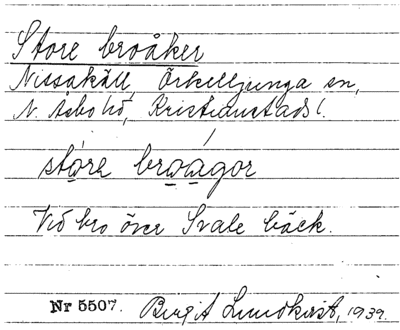 Store broåker
Nissakäll, Örkelljunga sn,
N. Åsbo hd, Kristianstads l.
stóre broagor
Vid bro över Svale bäck.
Nr 5507. Birgit Lundkvist, 1939.